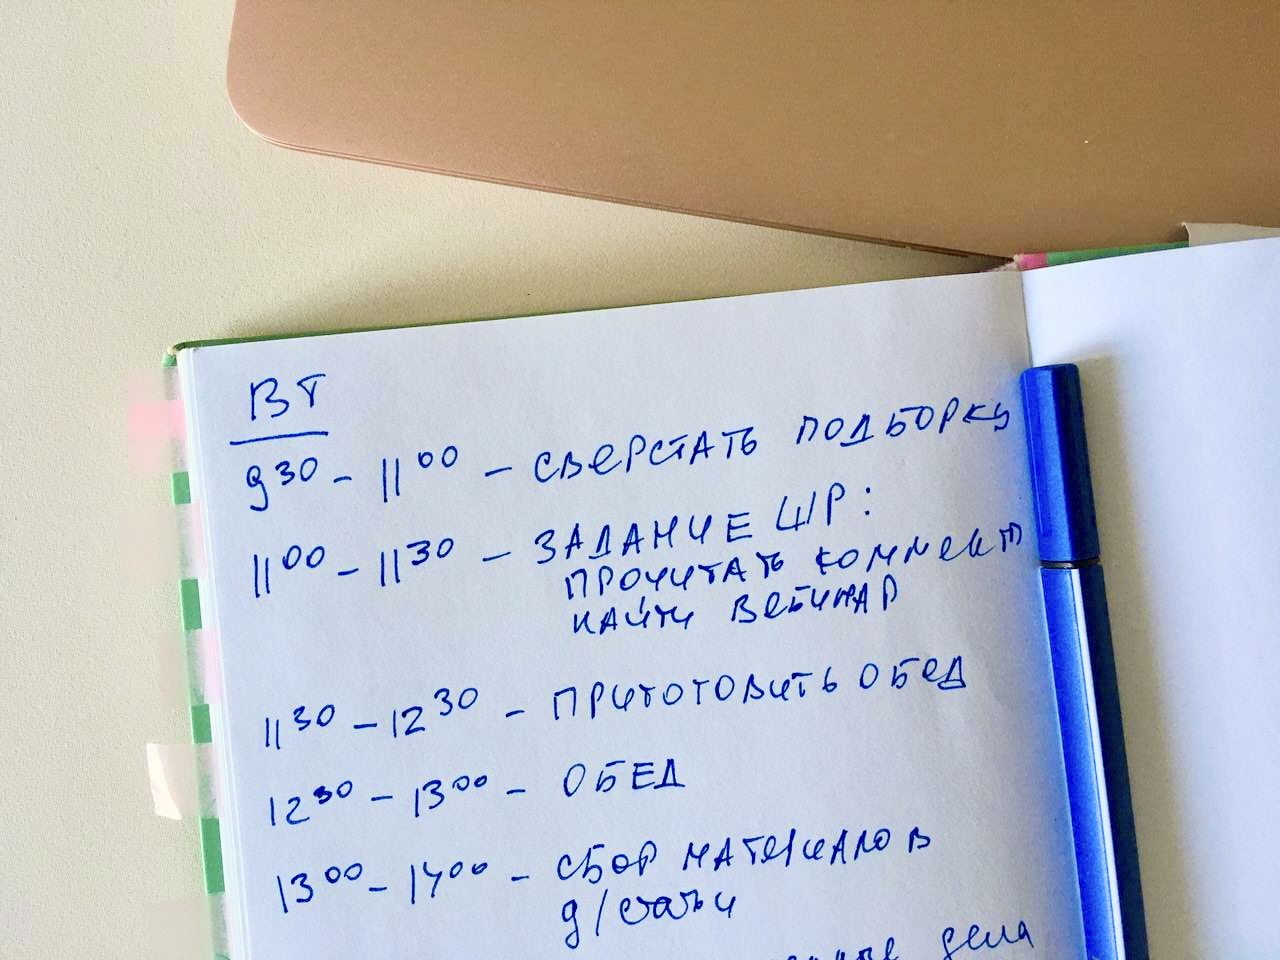 ВТ
9 30 - 11 00 - СВЕРСТАТЬ ПОДБОРКУ
11 00 - 11 30 - ЗАДАНИЕ ШР:
ПРОЧИТАТЬ КОММЕНТ
НАЙТИ ВЕБИНАР
11 30 - 12 30 - ПРИГОТОВИТЬ ОБЕД
12 30 - 13 00 - ОБЕД
13 00 - 14 00 - СБОР МАТЕРИАЛОВ
д/статьи
дела